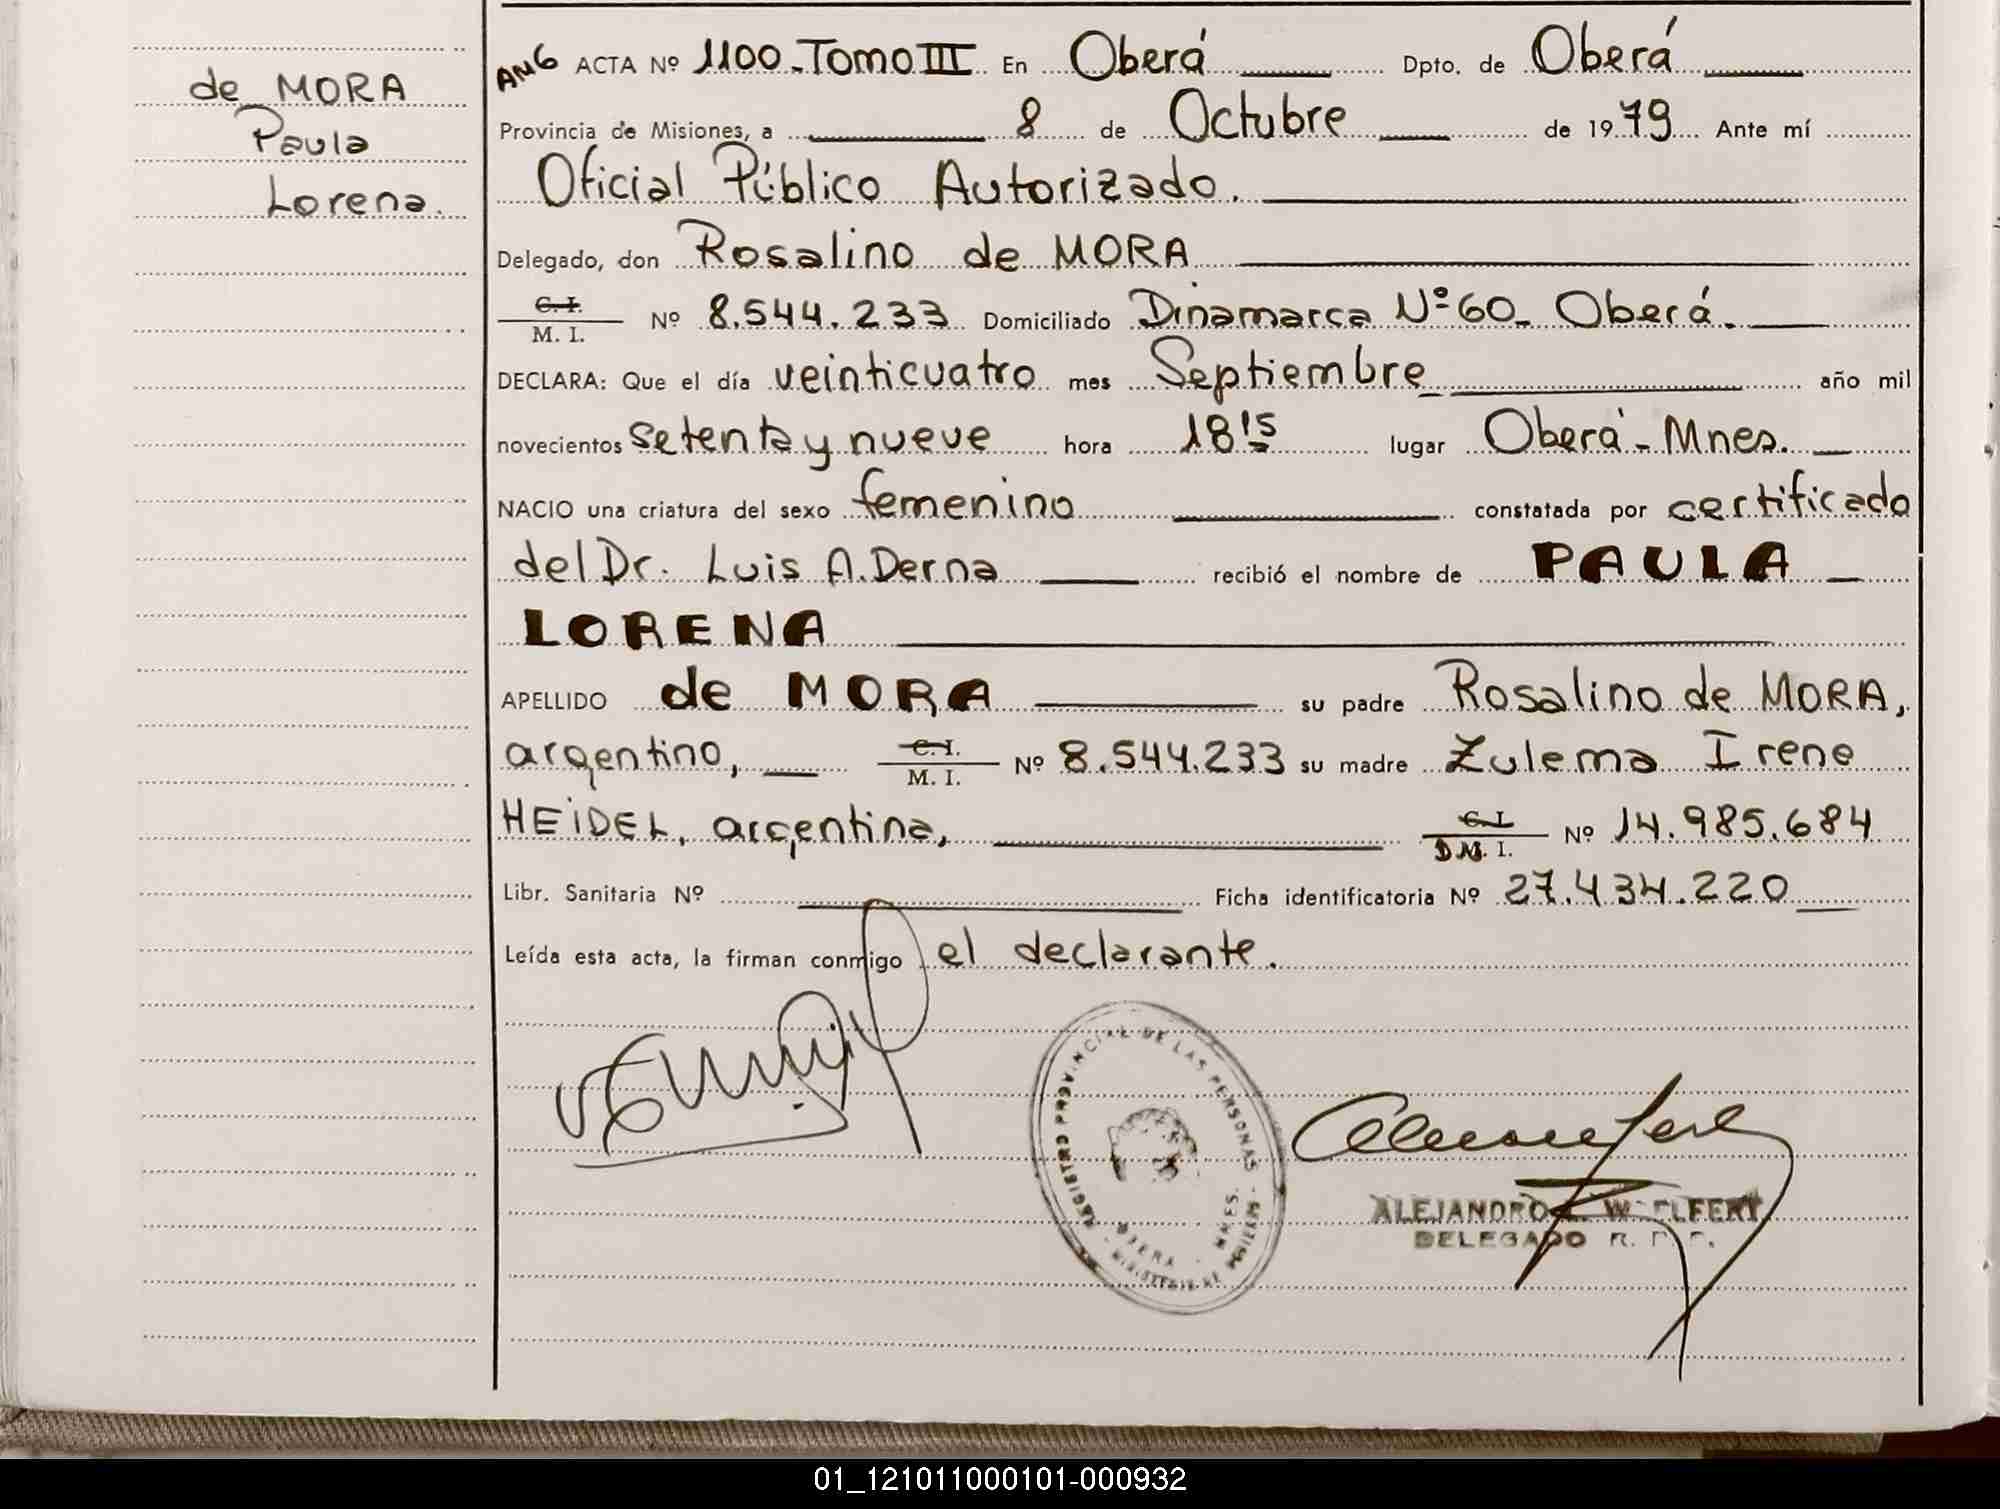 de MORA
Paula
Lorena.
ANG ACTA Nº 1100-Tomo III En Oberá Dpto. de Oberá
Provincia de Misiones, a 8 de Octubre de 1979 Ante mí
Oficial Público Autorizado.
Delegado, don Rosalino de MORA
C. I.
M. I. Nº 8.544.233 Domiciliado Dinamarca Nº 60- Oberá.
DECLARA: Que el día veinticuatro mes Septiembre año mil
novecientos setenta y nueve hora 18 15 lugar Oberá - Mnes.
NACIO una criatura del sexo femenino constatada por certificado
del Dr. Luis A. Derna recibió el nombre de PAULA
LORENA
APELLIDO de MORA su padre Rosalino de MORA,
argentino, C. I.
M. I. Nº 8.544.233 su madre Zulema Irene
HEIDEL, argentina, C. I.
D.N. I. Nº 14.985.684
Libr. Sanitaria Nº Ficha identificatoria Nº 27.434.220
Leída esta acta, la firman conmigo el declarante.
REGISTRO PROVINCIAL DE LAS PERSONAS
OBERA - MNES.
ALEJANDRO WOELFERT
DELEGADO R. P. P.
01_121011000101-000932